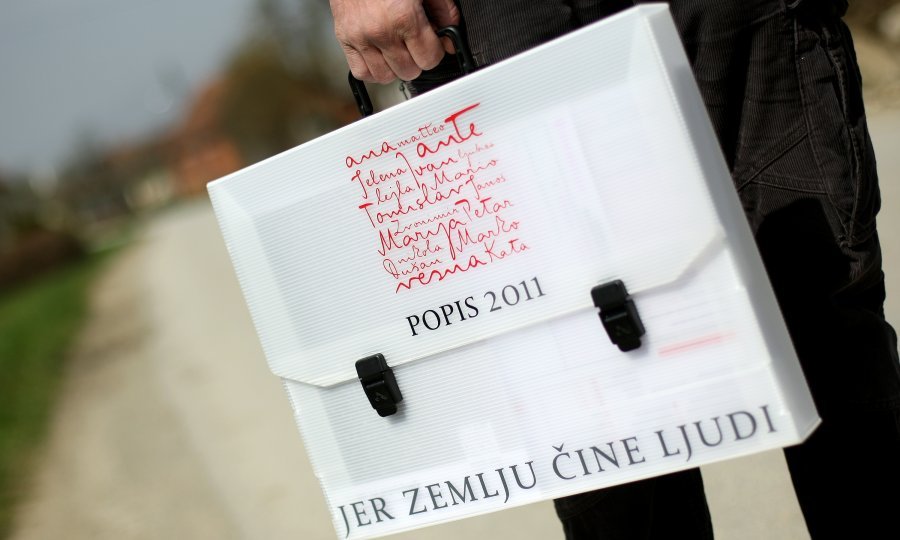 ana matteo Ante
Jelena Ivan ljubos
lejla Mario
Tomislav Janos
Zvonimir Petar
Marija Marko
nikola
Dušan Kata
vesna
POPIS 2011
JER ZEMLJU ČINE LJUDI